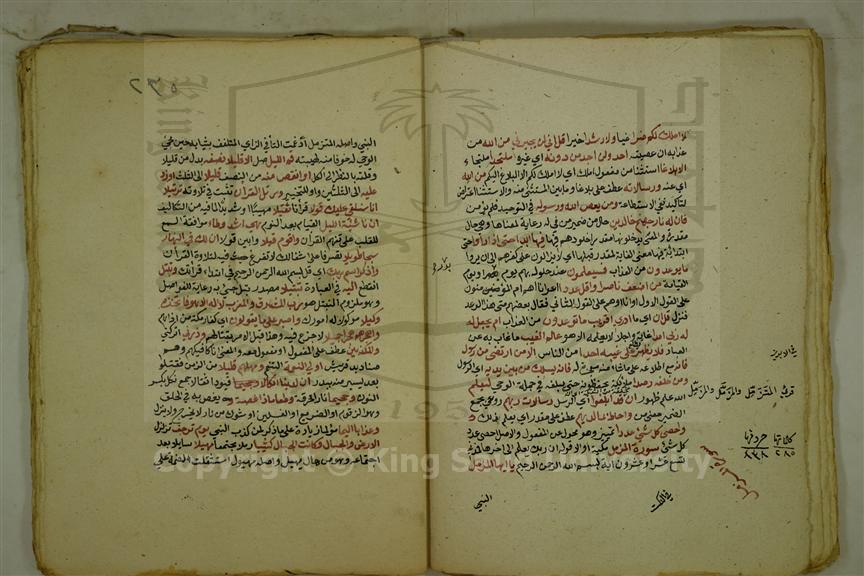 لا املك لكم ضرا غيا ولا رشدا خيرا قل اني لن يجيرني من الله من
عذابه ان عصيته احد ولن اجد من دونه اي غيره ملتحدا ملتجاء
الا بلاغا استثناء من مفعول املك اي لا املك لكم الا البلاغ اليكم من الله
اي عنه ورسالاته عطف على بلاغا وما بين المستثنى منه والاستثناء اعتراض
لتاكيد نفي الاستطاعة ومن يعص الله ورسوله في التوحيد فلم يؤمن
فان له نار جهنم خالدين حال من ضمير من في له رعاية لمعناها وهي حال
مقدرة والمعنى يدخلونها مقدرا خلودهم فيها ابدا حتى اذا راوا حتى
ابتدائية فيها معنى الغاية لمقدر قبلها اي لا يزالون على كفرهم الى ان يروا
ما يوعدون من العذاب فسيعلمون عند حلوله بهم يوم بدر او يوم
القيامة من اضعف ناصرا واقل عددا اعوانا اهم ام المؤمنون
على القول الاول او انا ام هم على الثاني فقال بعضهم متى هذا الوعد
فنزل قل ان اي ما ادري اقريب ما توعدون من العذاب ام يجعل له
له ربي امدا غاية واجلا لا يعلمه الا هو عالم الغيب ما غاب به عن
العباد فلا يظهر على غيبه احدا من الناس الا من ارتضى من رسول
فانه مع اطلاعه على ما شاء منه معجزة له يسلك من بين يديه اي الرسول
ومن خلفه رصدا ملائكة يحفظونه حتى يبلغه في جملة الوحي ليعلم
الله علم ظهور ان قد ابلغوا اي الرسل رسالات ربهم روعي بجمع
الضمير معنى من واحاط بما لديهم عطف على مقدر اي فعلم ذلك و
واحصى كل شيء عددا تمييز وهو محول عن المفعول والاصل احصى عدد
كل شيء سورة المزمل مكية او الا قوله ان ربك يعلم الى اخرها
تسع عشر او عشرون اية بسم الله الرحمن الرحيم يا ايها المزمل
النبي
قرئ المتزمل والمزمل
كلماتها حروفها
٢٨٥ ٨٣٨
سورة المزمل
٢٣٥
النبي واصله المتزمل ادغمت التاء في الزاي اي المتلفف بثيابه حين مجيء
الوحي له خوفا منه لهيبته قم الليل صل الا قليلا نصفه بدل من قليلا
وقلته بالنظر الى الكل او انقص منه من النصف قليلا الى الثلث او زد
عليه الى الثلثين واو للتخيير ورتل القران تثبت في تلاوته ترتيلا
انا سنلقي عليك قولا قرانا ثقيلا مهيبا او شديدا لما فيه من التكاليف
ان ناشئة الليل القيام بعد النوم هي اشد وطا موافقة السمع
للقلب على تفهم القران واقوم قيلا وابين قولا ان لك في النهار
سبحا طويلا تصرفا في اشغالك لا تفرغ فيه لتلاوة القران
واذكر اسم ربك اي قل بسم الله الرحمن الرحيم في ابتداء قراءتك وتبتل
انقطع اليه في العبادة تبتيلا مصدر بتل جيء به رعاية للفواصل
وهو ملزوم التبتل هو رب المشرق والمغرب لا اله الا هو فاتخذه
وكيلا موكولا له امورك واصبر على ما يقولون اي كفار مكة من اذاهم
واهجرهم هجرا جميلا لا جزع فيه وهذا قبل الامر بقتالهم وذرني اتركني
والمكذبين عطف على المفعول او مفعول معه والمعنى انا كافيكهم وهم
صناديد قريش اولي النعمة التنعم ومهلهم قليلا من الزمن فقتلوا
بعد يسير منه ببدر ان لدينا انكالا قيودا ثقالا جمع نكل بكسر
النون وجحيما نارا محرقة وطعاما ذا غصة يغص به في الحلق
وهو الزقوم او الضريع او الغسلين او شوك من نار لا يخرج ولا ينزل
وعذابا اليما مؤلما زيادة على ما ذكر لمن كذب النبي يوم ترجف تزلزل
الارض والجبال وكانت الجبال كثيبا رملا مجتمعا مهيلا سايلا بعد
اجتماعه وهو من هال يهيل واصله مهيول استثقلت الضمة على
Copyright © King Saud University
1957